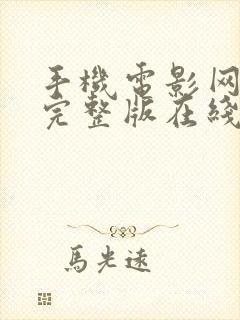 手機電影网
完整版在綫
馬光遠